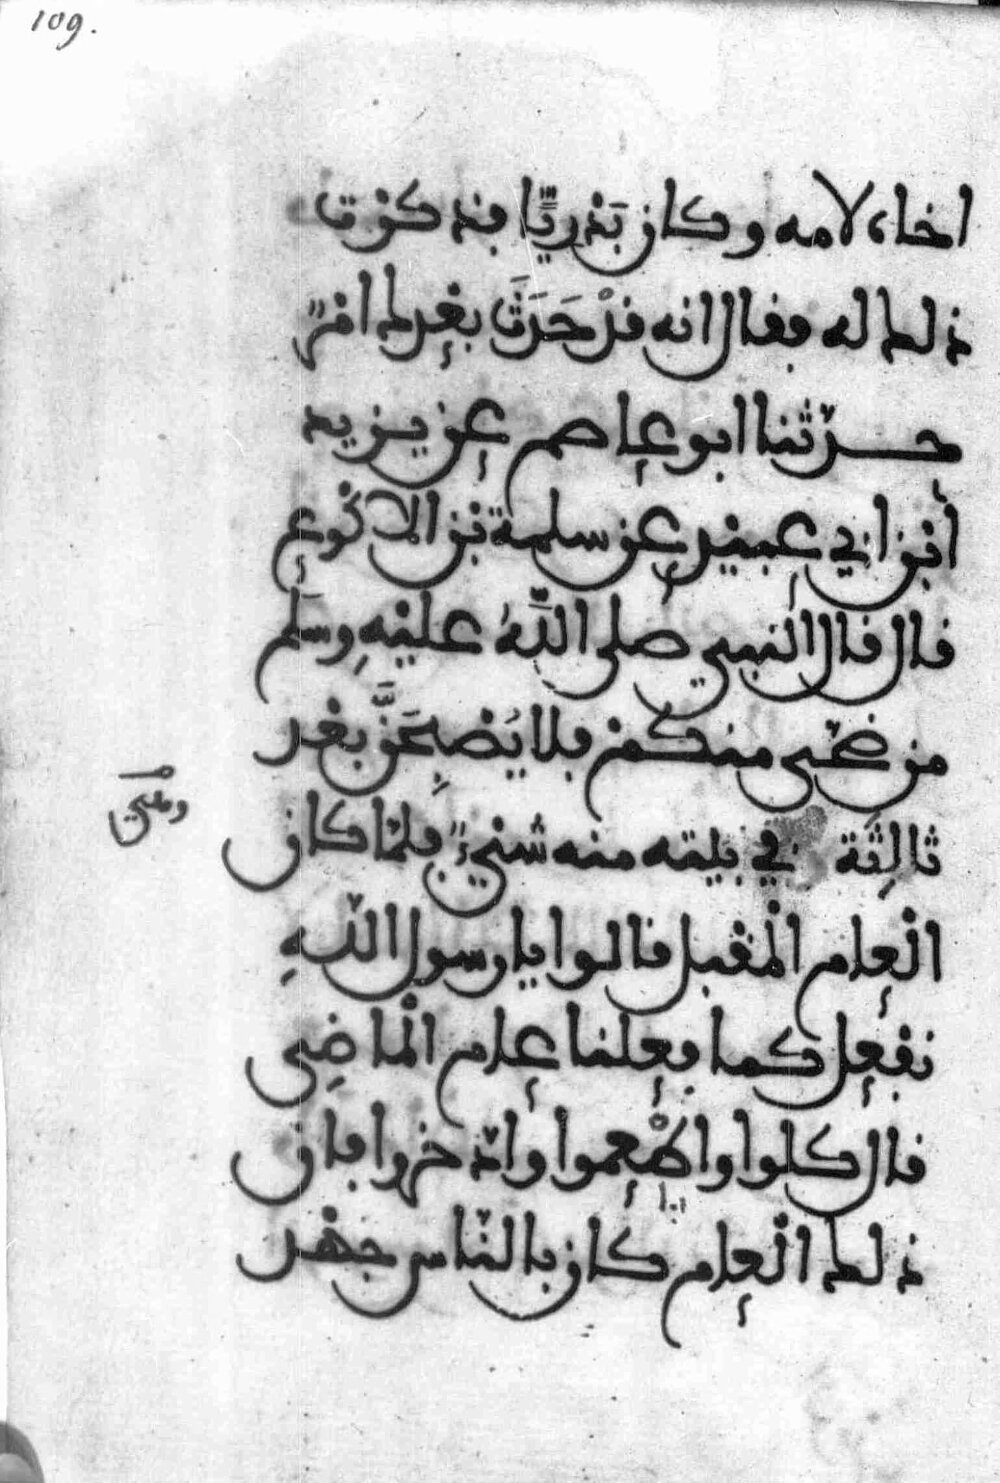 109.
اخاه لامه وكان بَدْرِيًّا فذكرت
ذلك له فقال انه قدْ حَدَثَ بعْدك امْرٌ
حدّثنا ابو عاصم عن يزيد
أبْن ابي عبيْد عن سلمة بْن الاكْوع
قال قال النبي صلى اللَّه عليْهِ وسَلم
من ضحّى منكمْ فلا يُصْبِحَنَّ بعْد
ثالِثة في بيته منه شيْءٌ فلمّا كان
وبقي
الْعام الْمقْبل قالوا يا رسول اللّهِ
نفْعل كما فعلنا عام الْماضِي
قال كلوا واطْعموا وادّخروا فان
ذلك الْعام كان بالنّاس جهْد